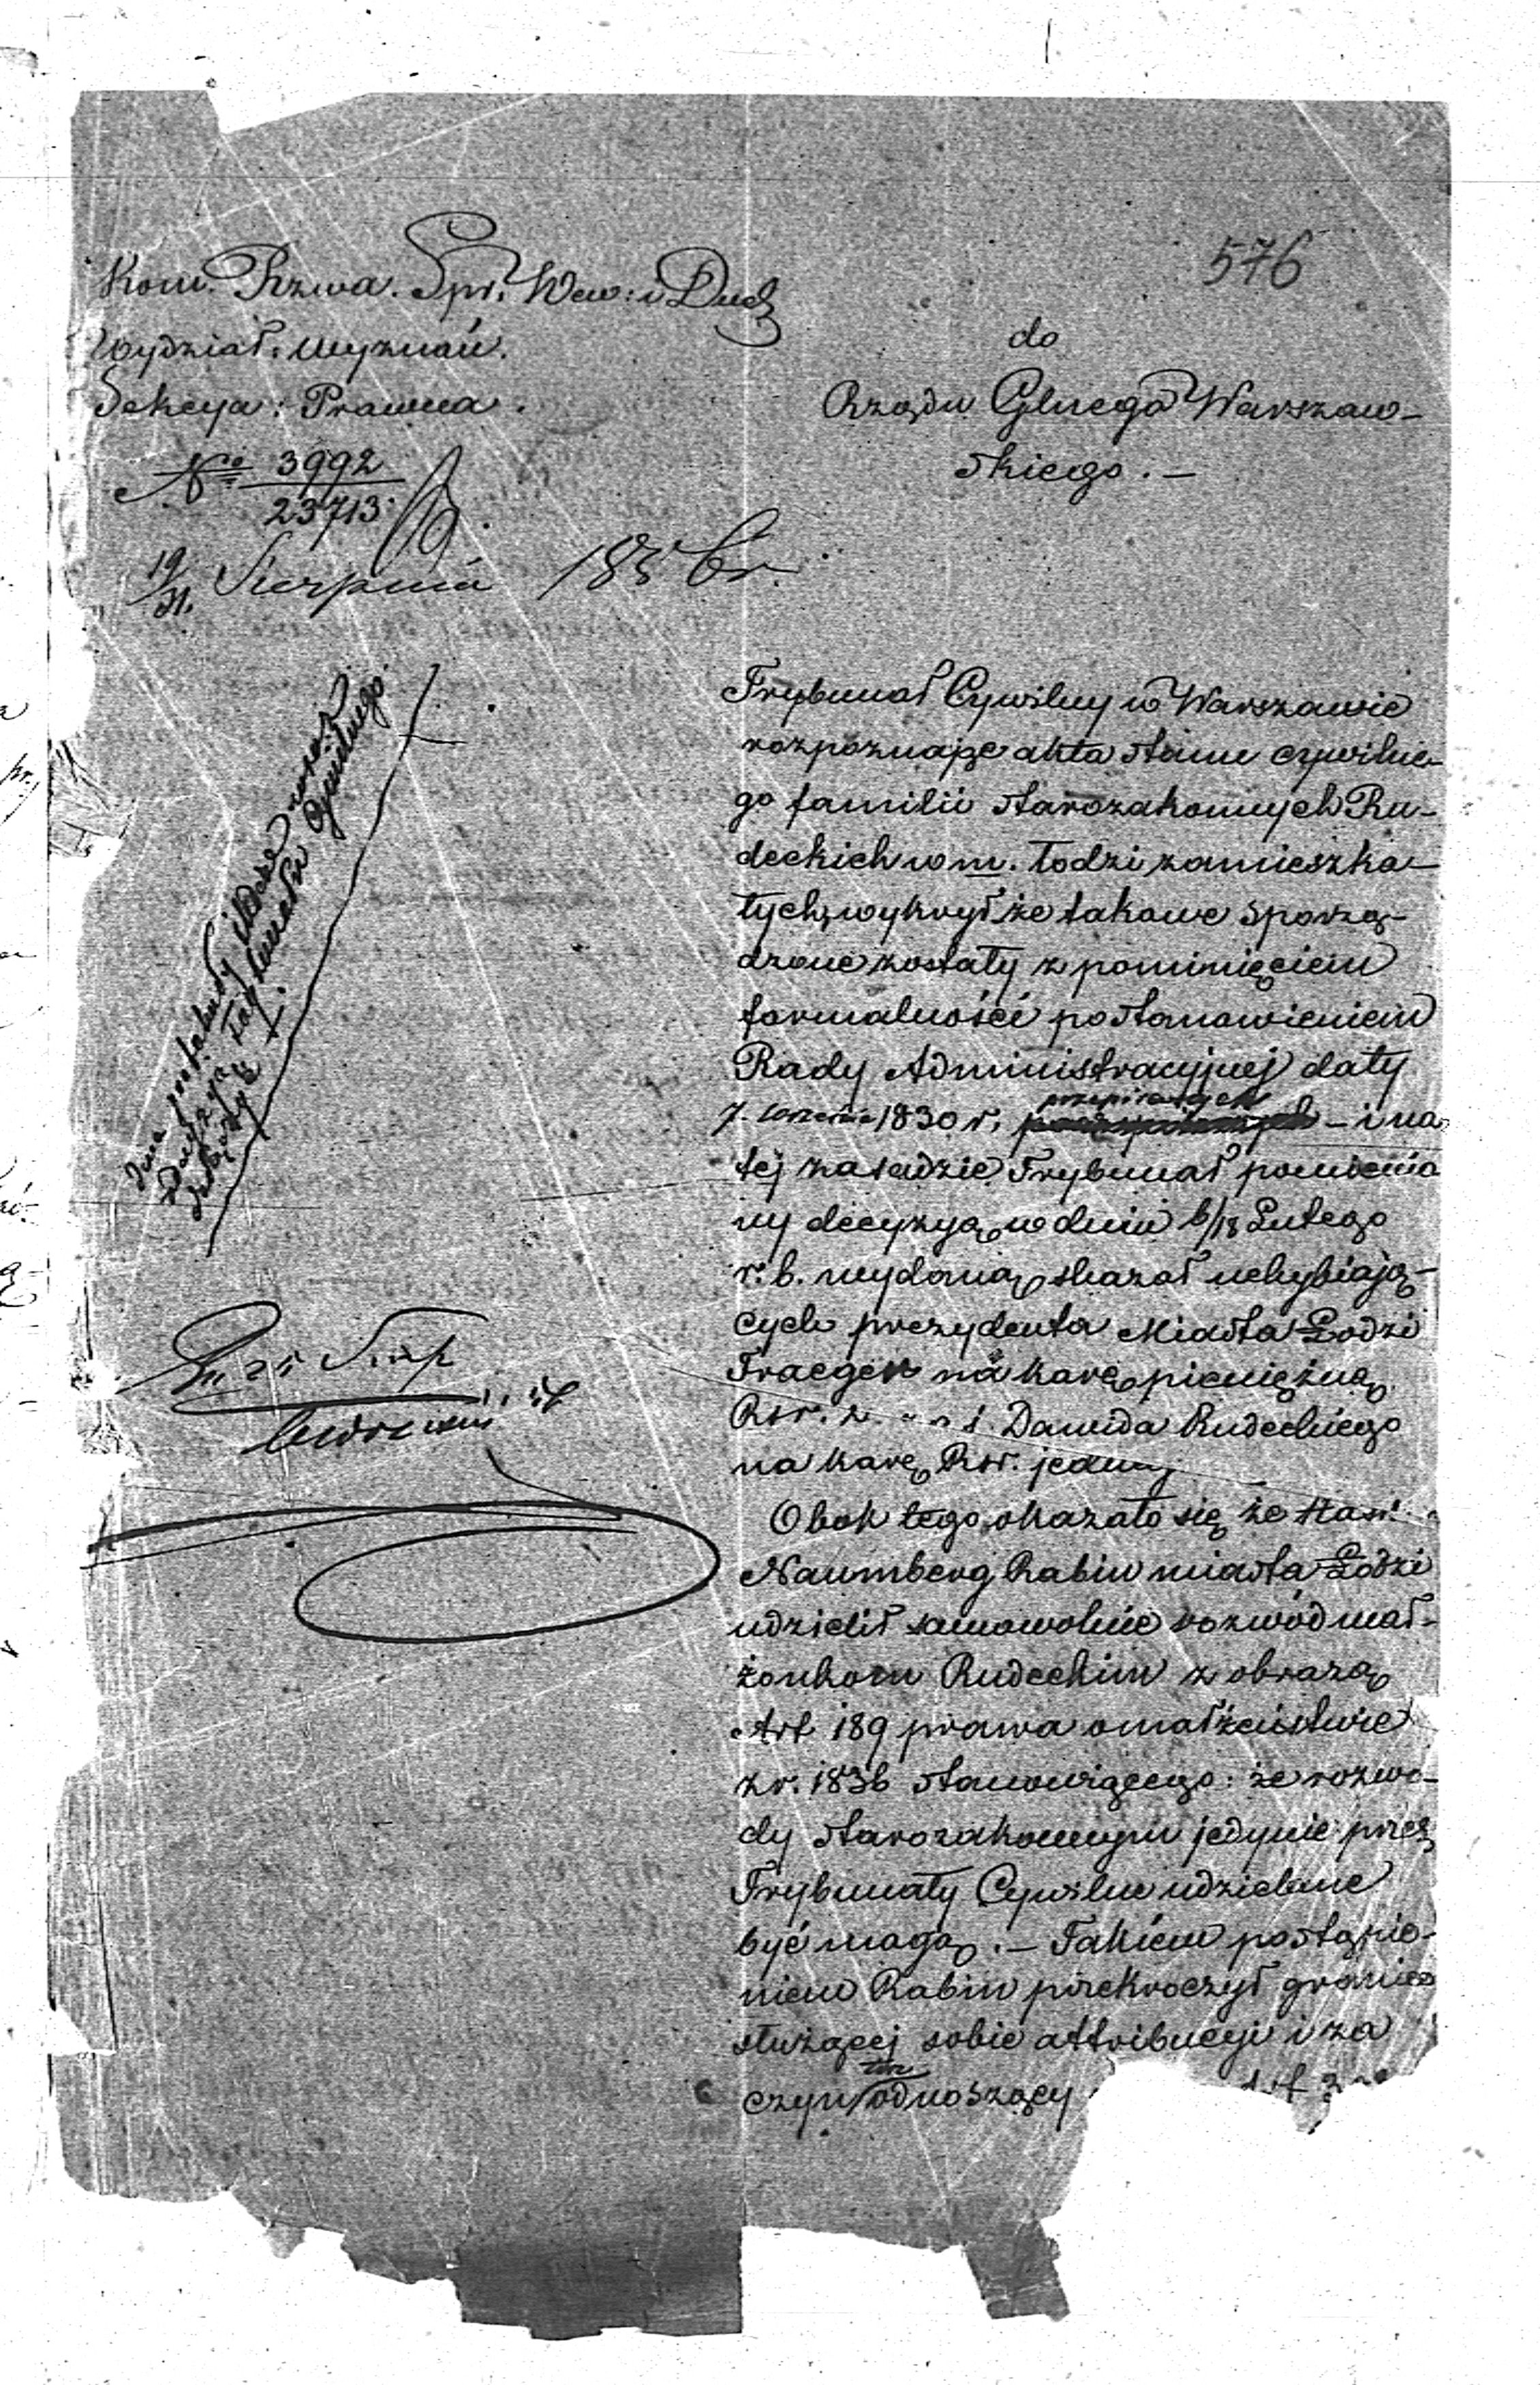 576
Kom. Rzwa. Spr. Wew: i Duch
Wydział: Wyznań.
Sekcya: Prawna.
No 3992
23713
19/31. Sierpnia 1856 r.
do
Rządu Glnego Warszaw-
skiego. —
Trybunał Cywilny w Warszawie
rozpoznając akta stanu cywilne-
go familii starozakonnych Ru-
deckich w m. Łodzi zamieszka-
łych, wykrył że takowe sporzą-
dzone zostały z pominięciem
formalności postanowieniem
Rady Administracyjnej daty
7. września 1830 r. przepisanych — i na
tej zasadzie Trybunał pomienio
ny decyzyą w dniu 6/18 Lutego
r. b. wydaną skazał uchybiają-
cych prezydenta Miasta Łodzi
Traeger na karę pieniężną
Rsr. 2. Dawida Rudeckiego
na karę Rsr. jeden
Obok tego okazało się że
Naumberg Rabin miasta Łodzi
udzielił samowolnie rozwód mał-
żonkom Rudeckim z obrazą
Art 189 prawa o małżeństwie
z r. 1836 stanowiącego: że rozwo-
dy starozakonnym jedynie przez
Trybunały Cywilne udzielane
być mogą. — Takiém postąpie-
niem Rabin przekroczył granice
służącej sobie attribucyi i za
czyn ten odnoszący